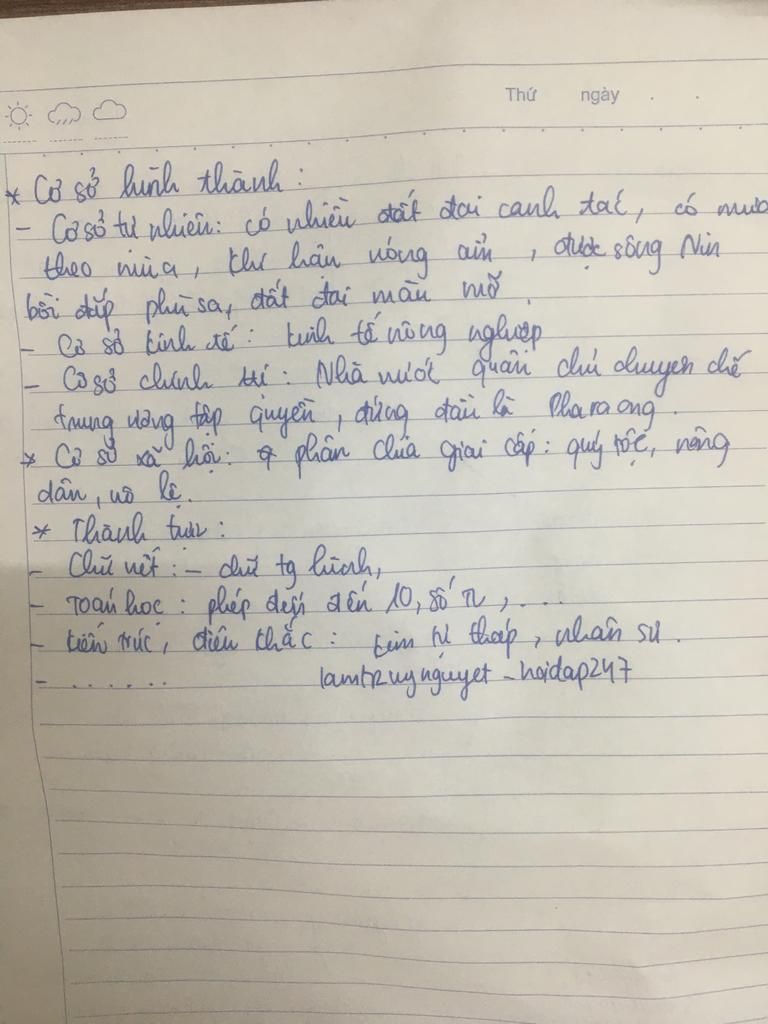 Thứ ngày . .
* Cơ sở hình thành:
- Cơ sở tự nhiên: có nhiều đất đai canh tác, có mưa
theo mùa, khí hậu nóng ẩm, được sông Nin
bồi đắp phù sa, đất đai màu mỡ.
- Cơ sở kinh tế: kinh tế nông nghiệp
- Cơ sở chính trị: Nhà nước quân chủ chuyên chế
trung ương tập quyền, đứng đầu là Pharaong.
* Cơ sở xã hội: phân chia giai cấp: quý tộc, nông
dân, nô lệ.
* Thành tựu:
- Chữ viết: - chữ tg hình,
- Toán học: phép đếm đến 10, số π, ...
- kiến trúc, điêu khắc: kim tự tháp, nhân sư.
- ...... lamtzuynguyet_hoidap247